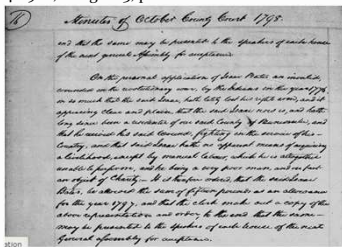 Minutes of October County Court 1798.
and that the same may be presented to the speakers of each house
of the next general Assembly for acceptance.
On the personal application of Isaac Bates an invalid,
wounded in the revolutionary war, by the Indians in the year 1776
in so much that the said Isaac, hath lately lost his right arm, and it
appearing clear and plain that the said Isaac now is, and hath
long since been a resident of our said County of Buncombe, and
that he received his said wound, fighting in the service of his
Country, and that said Isaac hath no apparent means of acquiring
a livelihood, except by manual labour, which he is altogether
unable to perform, and he being a very poor man, and in fact
an object of Charity. It is therefore that the said Isaac
Bates, be allowed the sum of fifteen pounds as an allowance
for the year 1797, and that the clerk make out a copy of the
above representation and order to the end that the same
may be presented to the speakers of each house of the next
General Assembly for acceptance.
ation